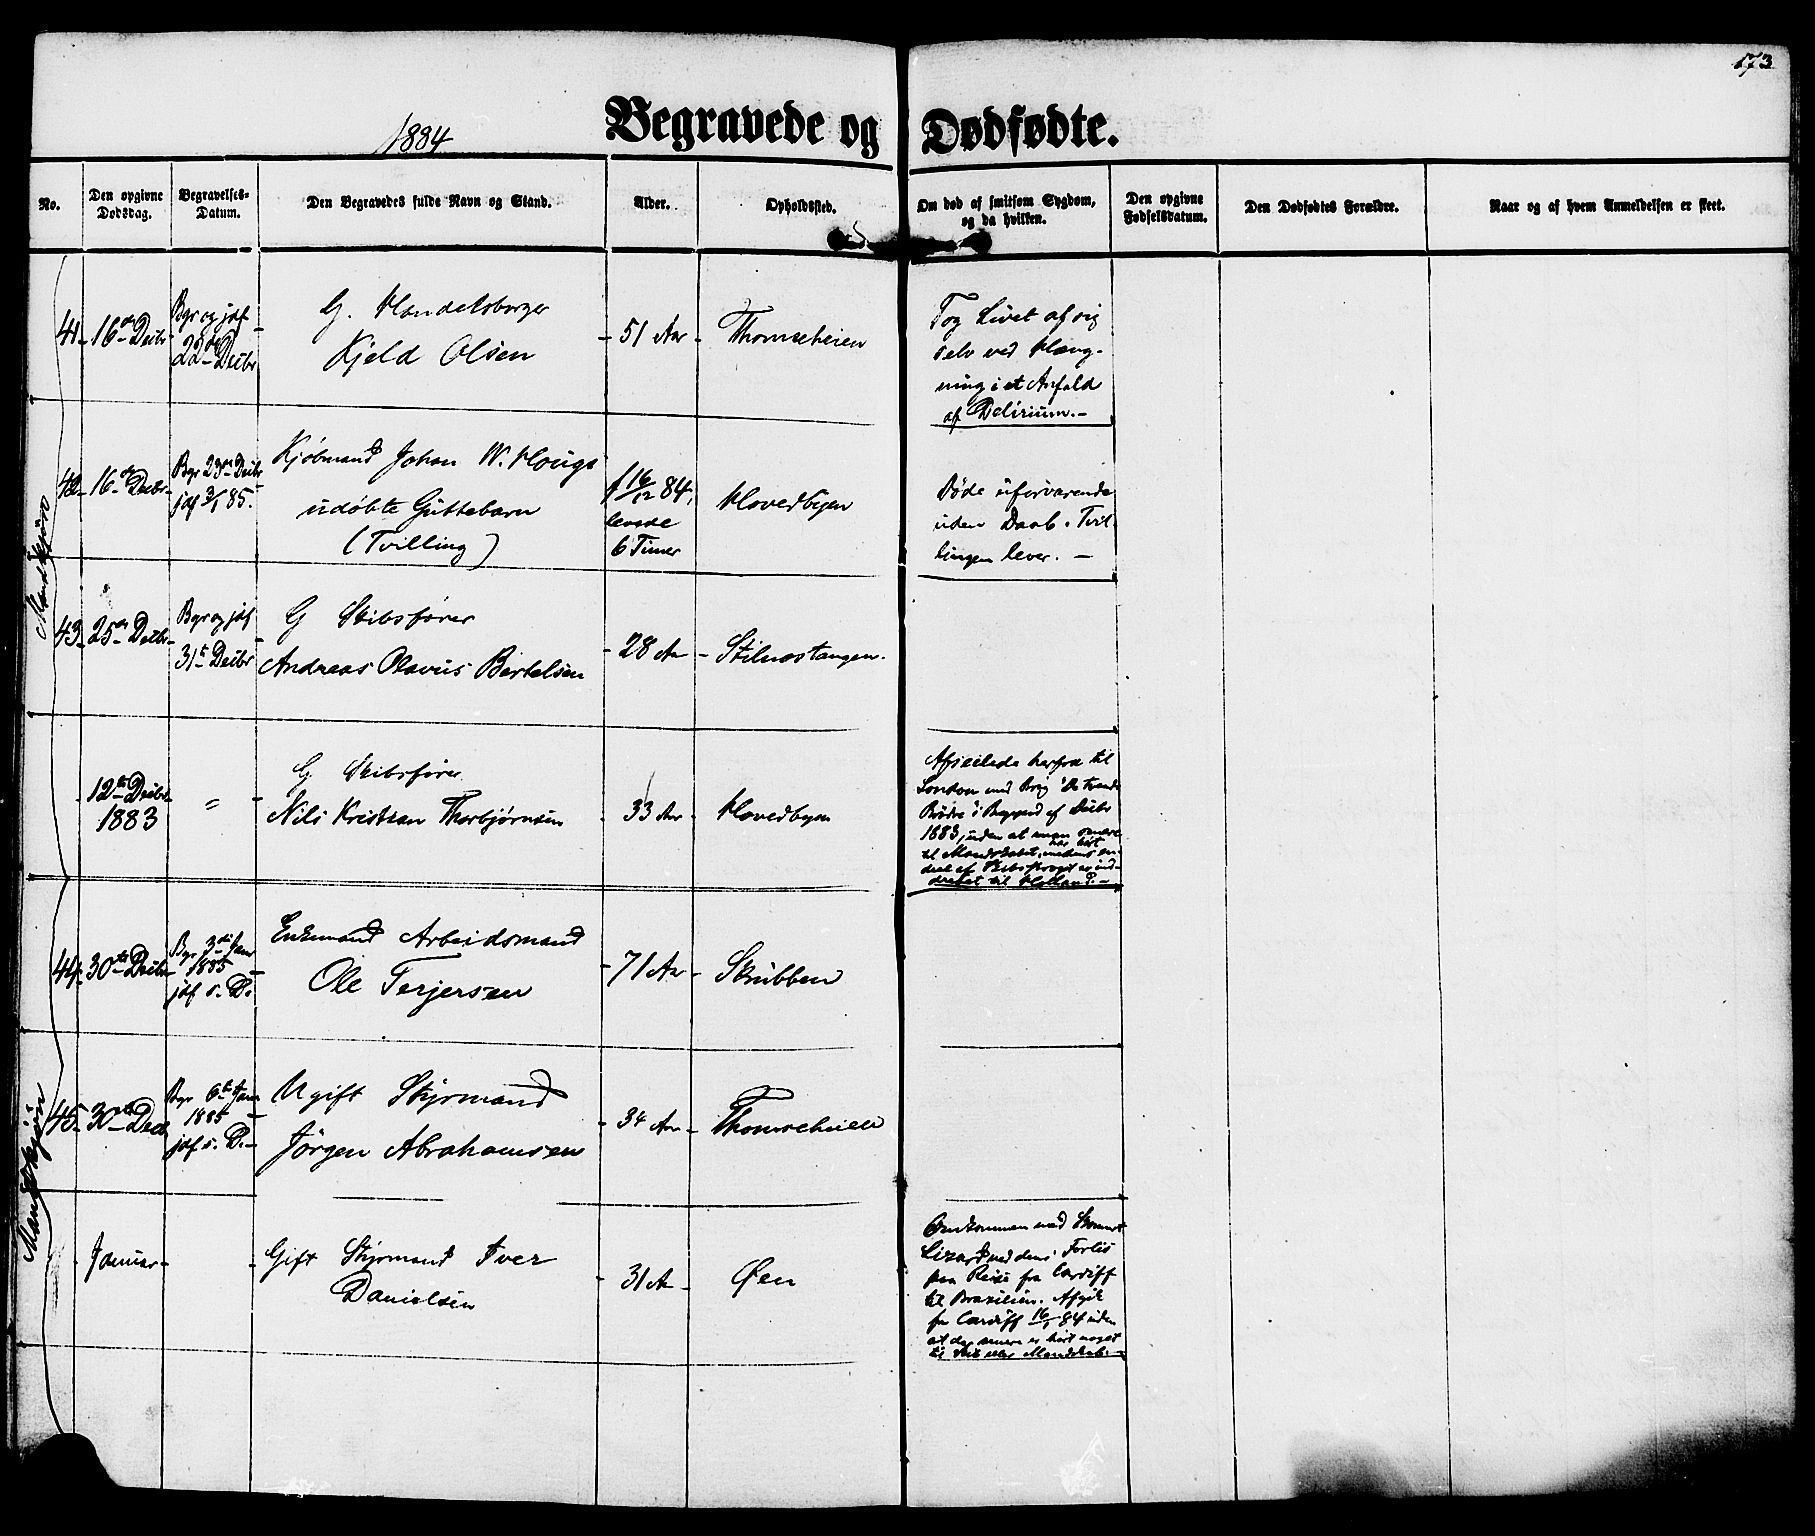 173
1884
Begravede og Dødfødte.
No.
Den opgivne Dødsdag.
Begravelses-Datum.
Den Begravedes fulde Navn og Stand.
Alder.
Opholdssted.
Om død af smitsom Sygdom, og da hvilken.
Den opgivne Fødselsdatum.
Den Dødfødtes Forældre.
Naar og af hvem Anmeldelsen er skeet.
Mandkjøn
41
16de Decbr
Bgr og jdf
22de Decbr
G. Handelsborger
Kjeld Olsen
51 Aar
Thomseheien
Tog Livet af sig
selv ved Hæng-
ning i et Anfald
af Delirium.-
42
16de Decbr
Bgr 23de Decbr
jdf 3/1 85.
Kjøbmand Johan W. Houge
udøbte Guttebarn
(Tvilling)
f 16/12 84,
levede
6 Timer
Hovedbyen
Døde uforvarende
uden Daab. Tvil
lingen lever. -
43
25de Decbr
Bgr og jdf
31te Decbr
G Skibsfører
Andreas Olavus Bertelsen
28 Aar
Stilnestangen.
12te Decbr
1883
"
G Skibsfører
Nils Kristian Thorbjørnsen
33 Aar
Hovedbyen
Afseilede herfra til
London med Brig "De tvende
Brødre" i Begynd af Decbr
1883, uden at man senere
har hørt
til Mandskabet, medens en
deel af Skibsvraget er ind-
drevet til Holland.-
44
30te Decbr
Bgr 3die Janr
1885
jdf s. D.
Enkemand Arbeidsmand
Ole Terjersen
71 Aar
Skrubben
Mandkjøn
45
30te Decb
Bgr 6te Janr
1885
jdf s. D.-
Ugift Styrmand
Jørgen Abrahamsen
34 Aar
Thomseheien
Januar
Gift Styrmand Iver
Danielsen
31 A
Øen
Omkommen med Skonnert
Lizard ved dens Forlis
paa Reise fra Cardiff
til Brazilien. Afgik
fra Cardiff 16/1 84 uden
at der senere er hørt noget
til Skib eller Mandskab.-